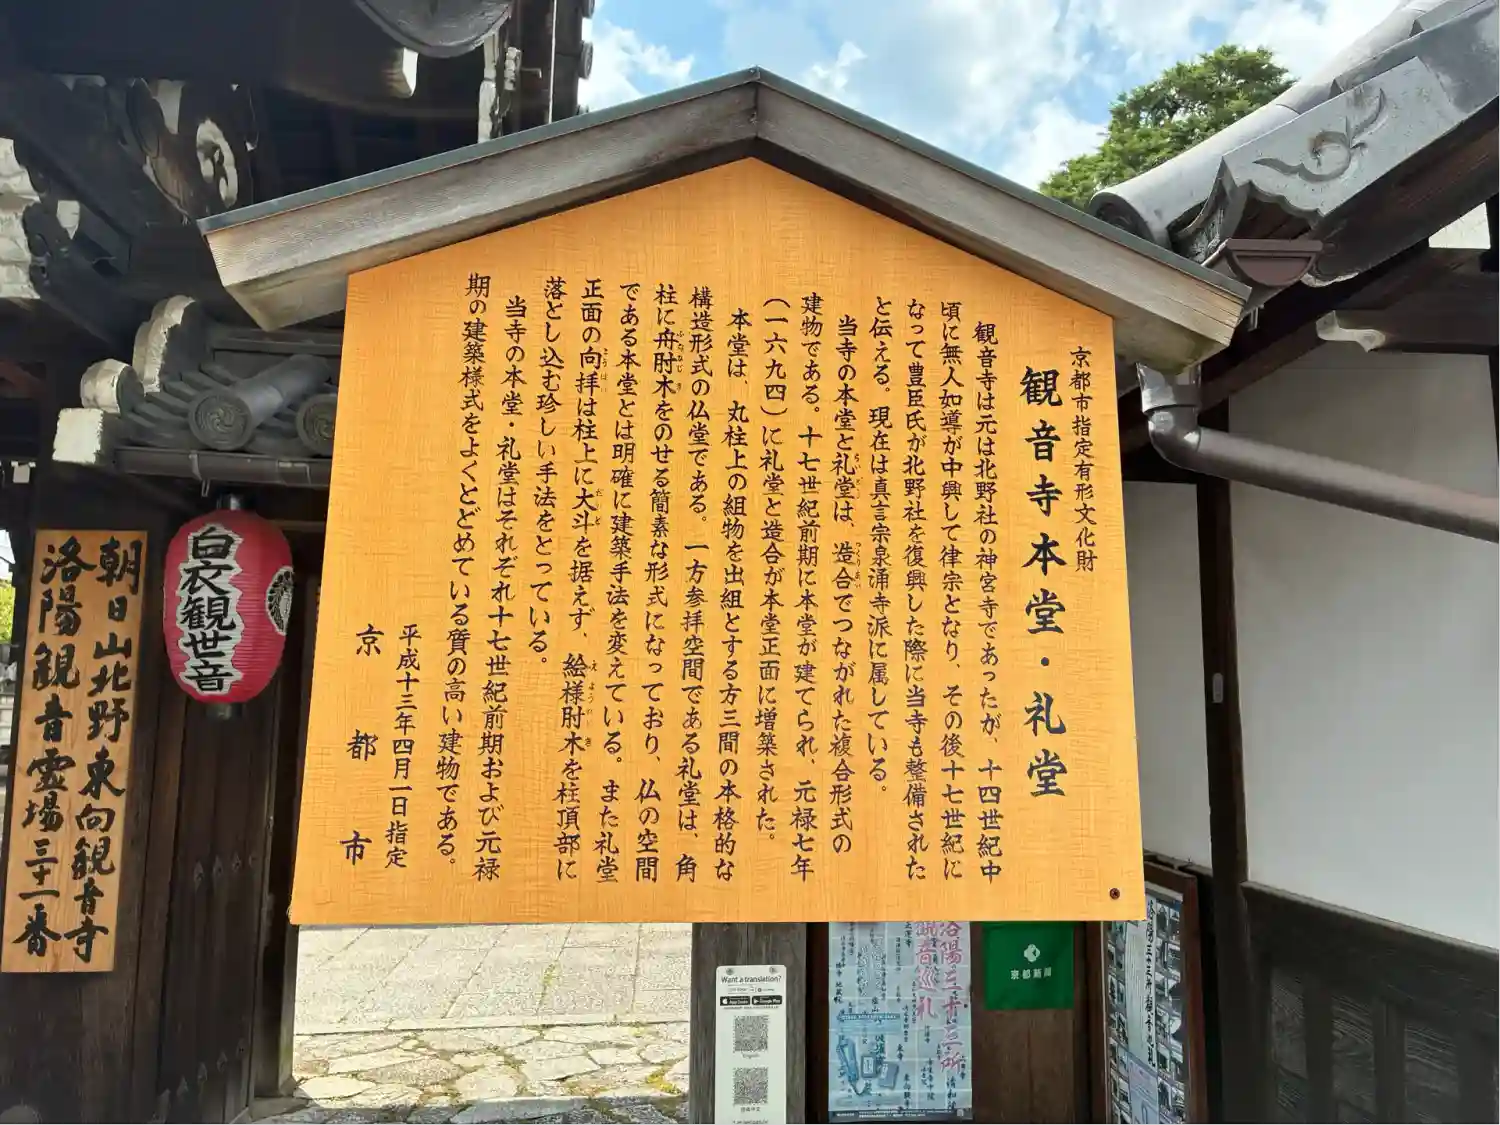 京都市指定有形文化財
観音寺本堂・礼堂
観音寺は元は北野社の神宮寺であったが、十四世紀中
頃に無人如導が中興して律宗となり、その後十七世紀に
なって豊臣氏が北野社を復興した際に当寺も整備された
と伝える。現在は真言宗泉涌寺派に属している。
当寺の本堂と礼堂は、造合でつながれた複合形式の
建物である。十七世紀前期に本堂が建てられ、元禄七年
(一六九四)に礼堂と造合が本堂正面に増築された。
本堂は、丸柱上の組物を出組とする方三間の本格的な
構造形式の仏堂である。一方参拝空間である礼堂は、角
柱に舟肘木をのせる簡素な形式になっており、仏の空間
である本堂とは明確に建築手法を変えている。また礼堂
正面の向拝は柱上に大斗を据えず、絵様肘木を柱頂部に
落とし込む珍しい手法をとっている。
当寺の本堂・礼堂はそれぞれ十七世紀前期および元禄
期の建築様式をよくとどめている質の高い建物である。
平成十三年四月一日指定
京都市
白衣観世音
朝日山北野東向観音寺
洛陽観音霊場三十一番
Want a translation?
App Store
Google Play
English
洛陽三十三所
観音巡礼
京都新聞